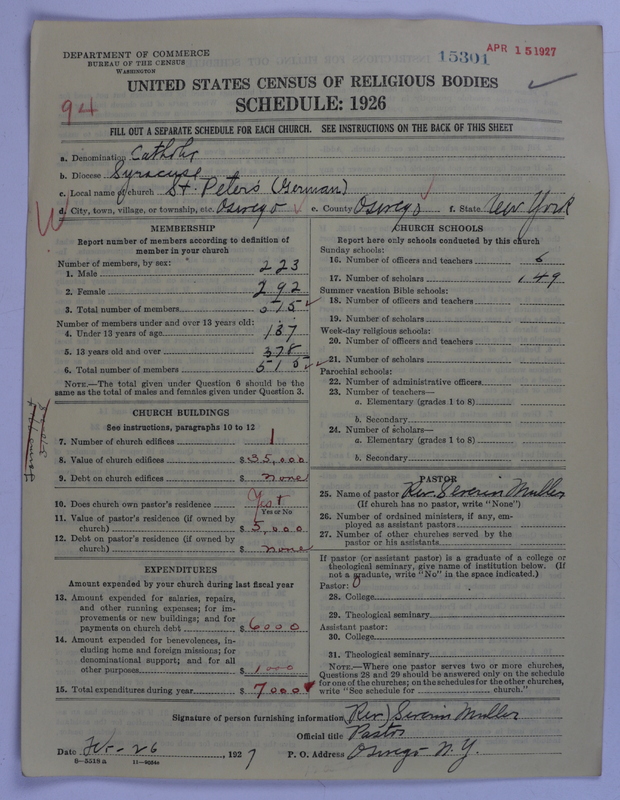 DEPARTMENT OF COMMERCE
BUREAU OF THE CENSUS
WASHINGTON
15301
APR 15 1927
UNITED STATES CENSUS OF RELIGIOUS BODIES
94
SCHEDULE: 1926
FILL OUT A SEPARATE SCHEDULE FOR EACH CHURCH. SEE INSTRUCTIONS ON THE BACK OF THIS SHEET
a. Denomination Catholic
b. Diocese Syracuse
c. Local name of church St. Peter's (German)
d. City, town, village, or township, etc. Oswego e. County Oswego f. State New York
MEMBERSHIP
Report number of members according to definition of
member in your church
Number of members, by sex:
1. Male 223
2. Female 292
3. Total number of members 515
Number of members under and over 13 years old:
4. Under 13 years of age 137
5. 13 years old and over 378
6. Total number of members 515
NOTE.—The total given under Question 6 should be the
same as the total of males and females given under Question 3.
CHURCH BUILDINGS
See instructions, paragraphs 10 to 12
7. Number of church edifices 1
8. Value of church edifices $ 35,000
9. Debt on church edifices $ none
10. Does church own pastor's residence
Yes or No
11. Value of pastor's residence (if owned by
church) $ 5,000
12. Debt on pastor's residence (if owned by
church) $ none
EXPENDITURES
Amount expended by your church during last fiscal year
13. Amount expended for salaries, repairs,
and other running expenses; for im-
provements or new buildings; and for
payments on church debt $ 6000
14. Amount expended for benevolences, in-
cluding home and foreign missions; for
denominational support; and for all
other purposes $ 1000
15. Total expenditures during year $ 7000
CHURCH SCHOOLS
Report here only schools conducted by this church
Sunday schools:
16. Number of officers and teachers 6
17. Number of scholars 49
Summer vacation Bible schools:
18. Number of officers and teachers
19. Number of scholars
Week-day religious schools:
20. Number of officers and teachers
21. Number of scholars
Parochial schools:
22. Number of administrative officers
23. Number of teachers—
a. Elementary (grades 1 to 8)
b. Secondary
24. Number of scholars—
a. Elementary (grades 1 to 8)
b. Secondary
PASTOR
25. Name of pastor Rev. Severin Muller
(If church has no pastor, write "None")
26. Number of ordained ministers, if any, em-
ployed as assistant pastors
27. Number of other churches served by the
pastor or his assistants
If pastor (or assistant pastor) is a graduate of a college or
theological seminary, give name of institution below. (If
not a graduate, write "No" in the space indicated.)
Pastor:
28. College
29. Theological seminary
Assistant pastor:
30. College
31. Theological seminary
NOTE.—Where one pastor serves two or more churches,
Questions 28 and 29 should be answered only on the schedule
for one of the churches; on the schedules for the other churches,
write "See schedule for church."
Signature of person furnishing information (Rev) Severin Muller
Official title Pastor
Date Fe- 26, 1927 P. O. Address Oswego N.Y.
8—5518a 11—9684